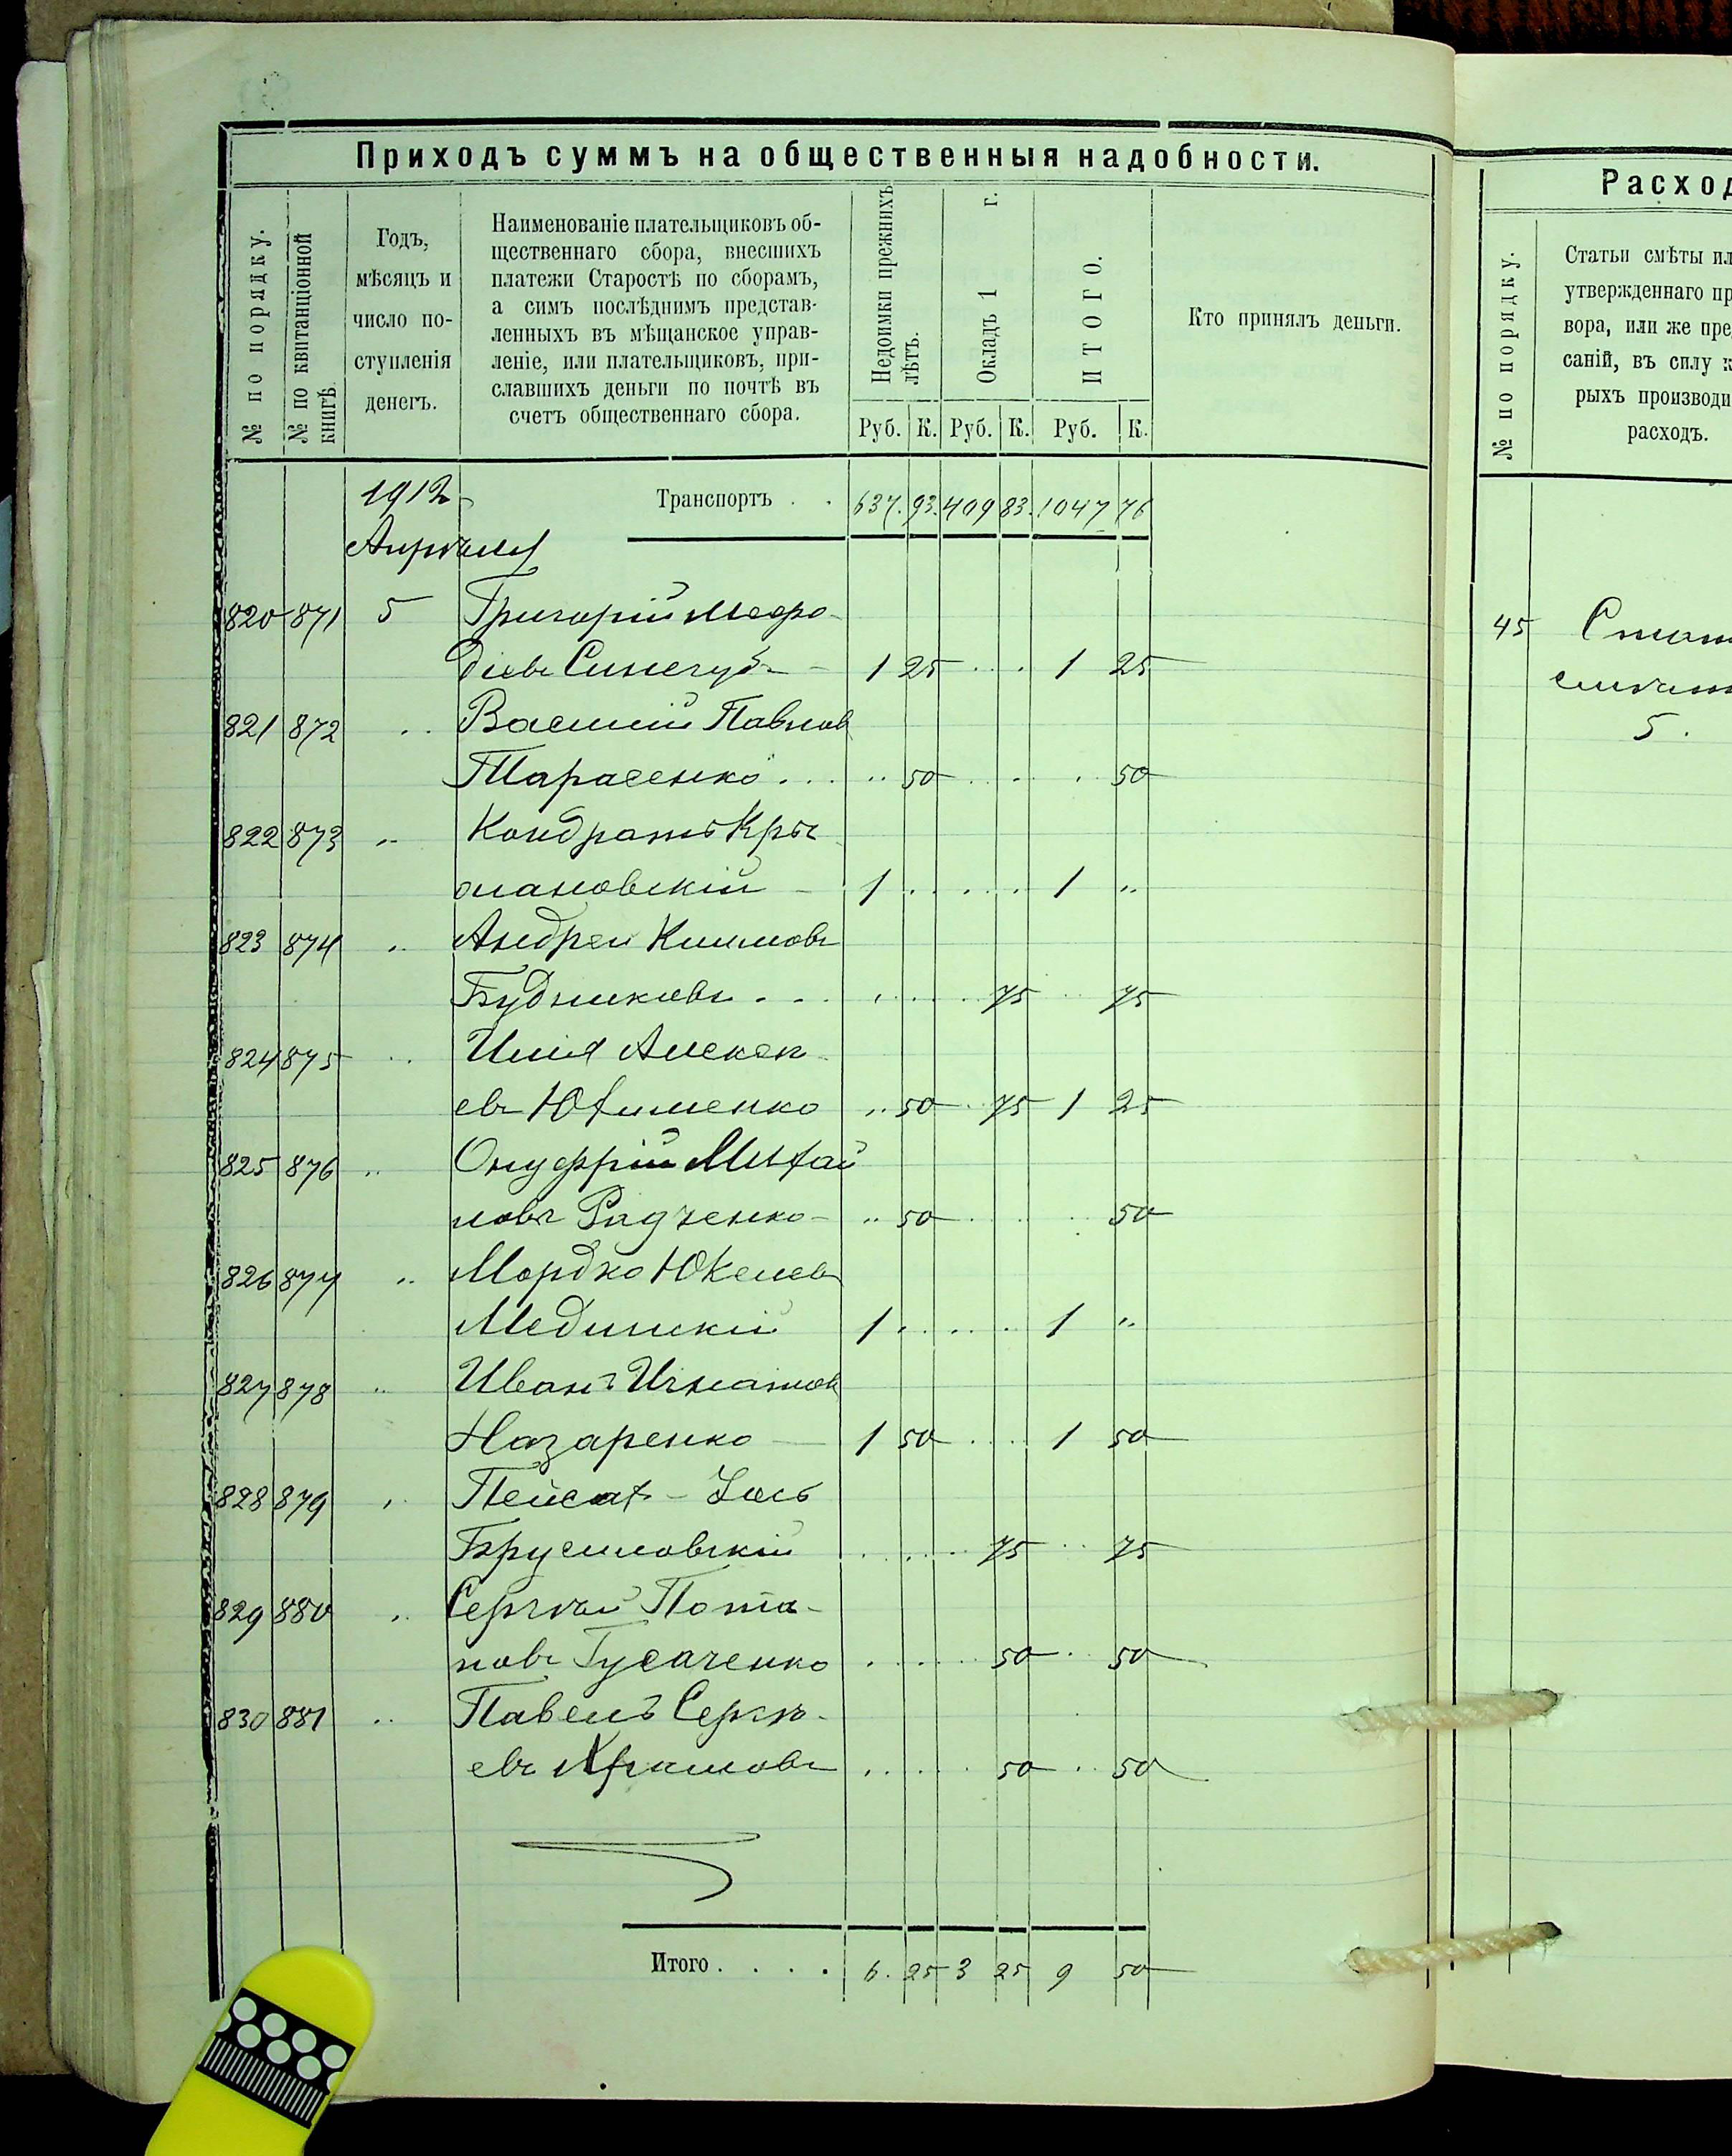 Приходъ суммъ на общественныя надобности.
№ по порядку.
№ по квитанціонной книгѣ.
Годъ, мѣсяцъ и число поступленія денегъ.
Наименованіе плательщиковъ об-
щественнаго сбора, внесшихъ
платежи Старостѣ по сборамъ,
а симъ послѣднимъ представ-
ленныхъ въ мѣщанское управ-
леніе, или плательщиковъ, при-
славшихъ деньги по почтѣ въ
счетъ общественнаго сбора.
Недоимки прежнихъ лѣтъ.
Окладъ 1 г.
ИТОГО.
Кто принялъ деньги.
Руб. К. Руб. К. Руб. К.
1912 Транспортъ . . 637. 93. 409 83. 1047 76
Апрѣль
820 871 5 Григорій Мефо-
діевъ Синегуб - 1 25 . . . 1 25
821 872 .. Василій Павлов
Тарасенко . . . .. 50 . . . 50
822 873 .. Кондратъ Кры
жановскій - 1 . . . . . 1 ..
823 874 .. Андрей Климовъ
Будниковъ . . . . . . 75 .. 75
824 875 .. Илія Алексѣ
евъ Юхименко .. 50 . 75 1 25
825 876 .. Онуфрій Михай
ловъ Радченко - .. 50 . . . 50
826 877 .. Мордко Юкелев
Мединскій 1 . . . . . 1 ..
827 878 .. Иванъ Игнатов
Назаренко - 1 50 . . . 1 50
828 879 .. Пейсах-
Брусиловскій . . . . 75 .. 75
829 880 .. Сергѣй Пота-
повъ Гусаченко . . . . 50 . . 50
830 881 .. Павелъ Сергѣ-
евъ . . . . 50 . . 50
Итого . . . . 6. 25 3 25 9 50
Расход
№ по порядку.
Статьи смѣты ил
утвержденнаго пр
вора, или же пре
саній, въ силу к
рыхъ производи
расходъ.
45 Стат
5.